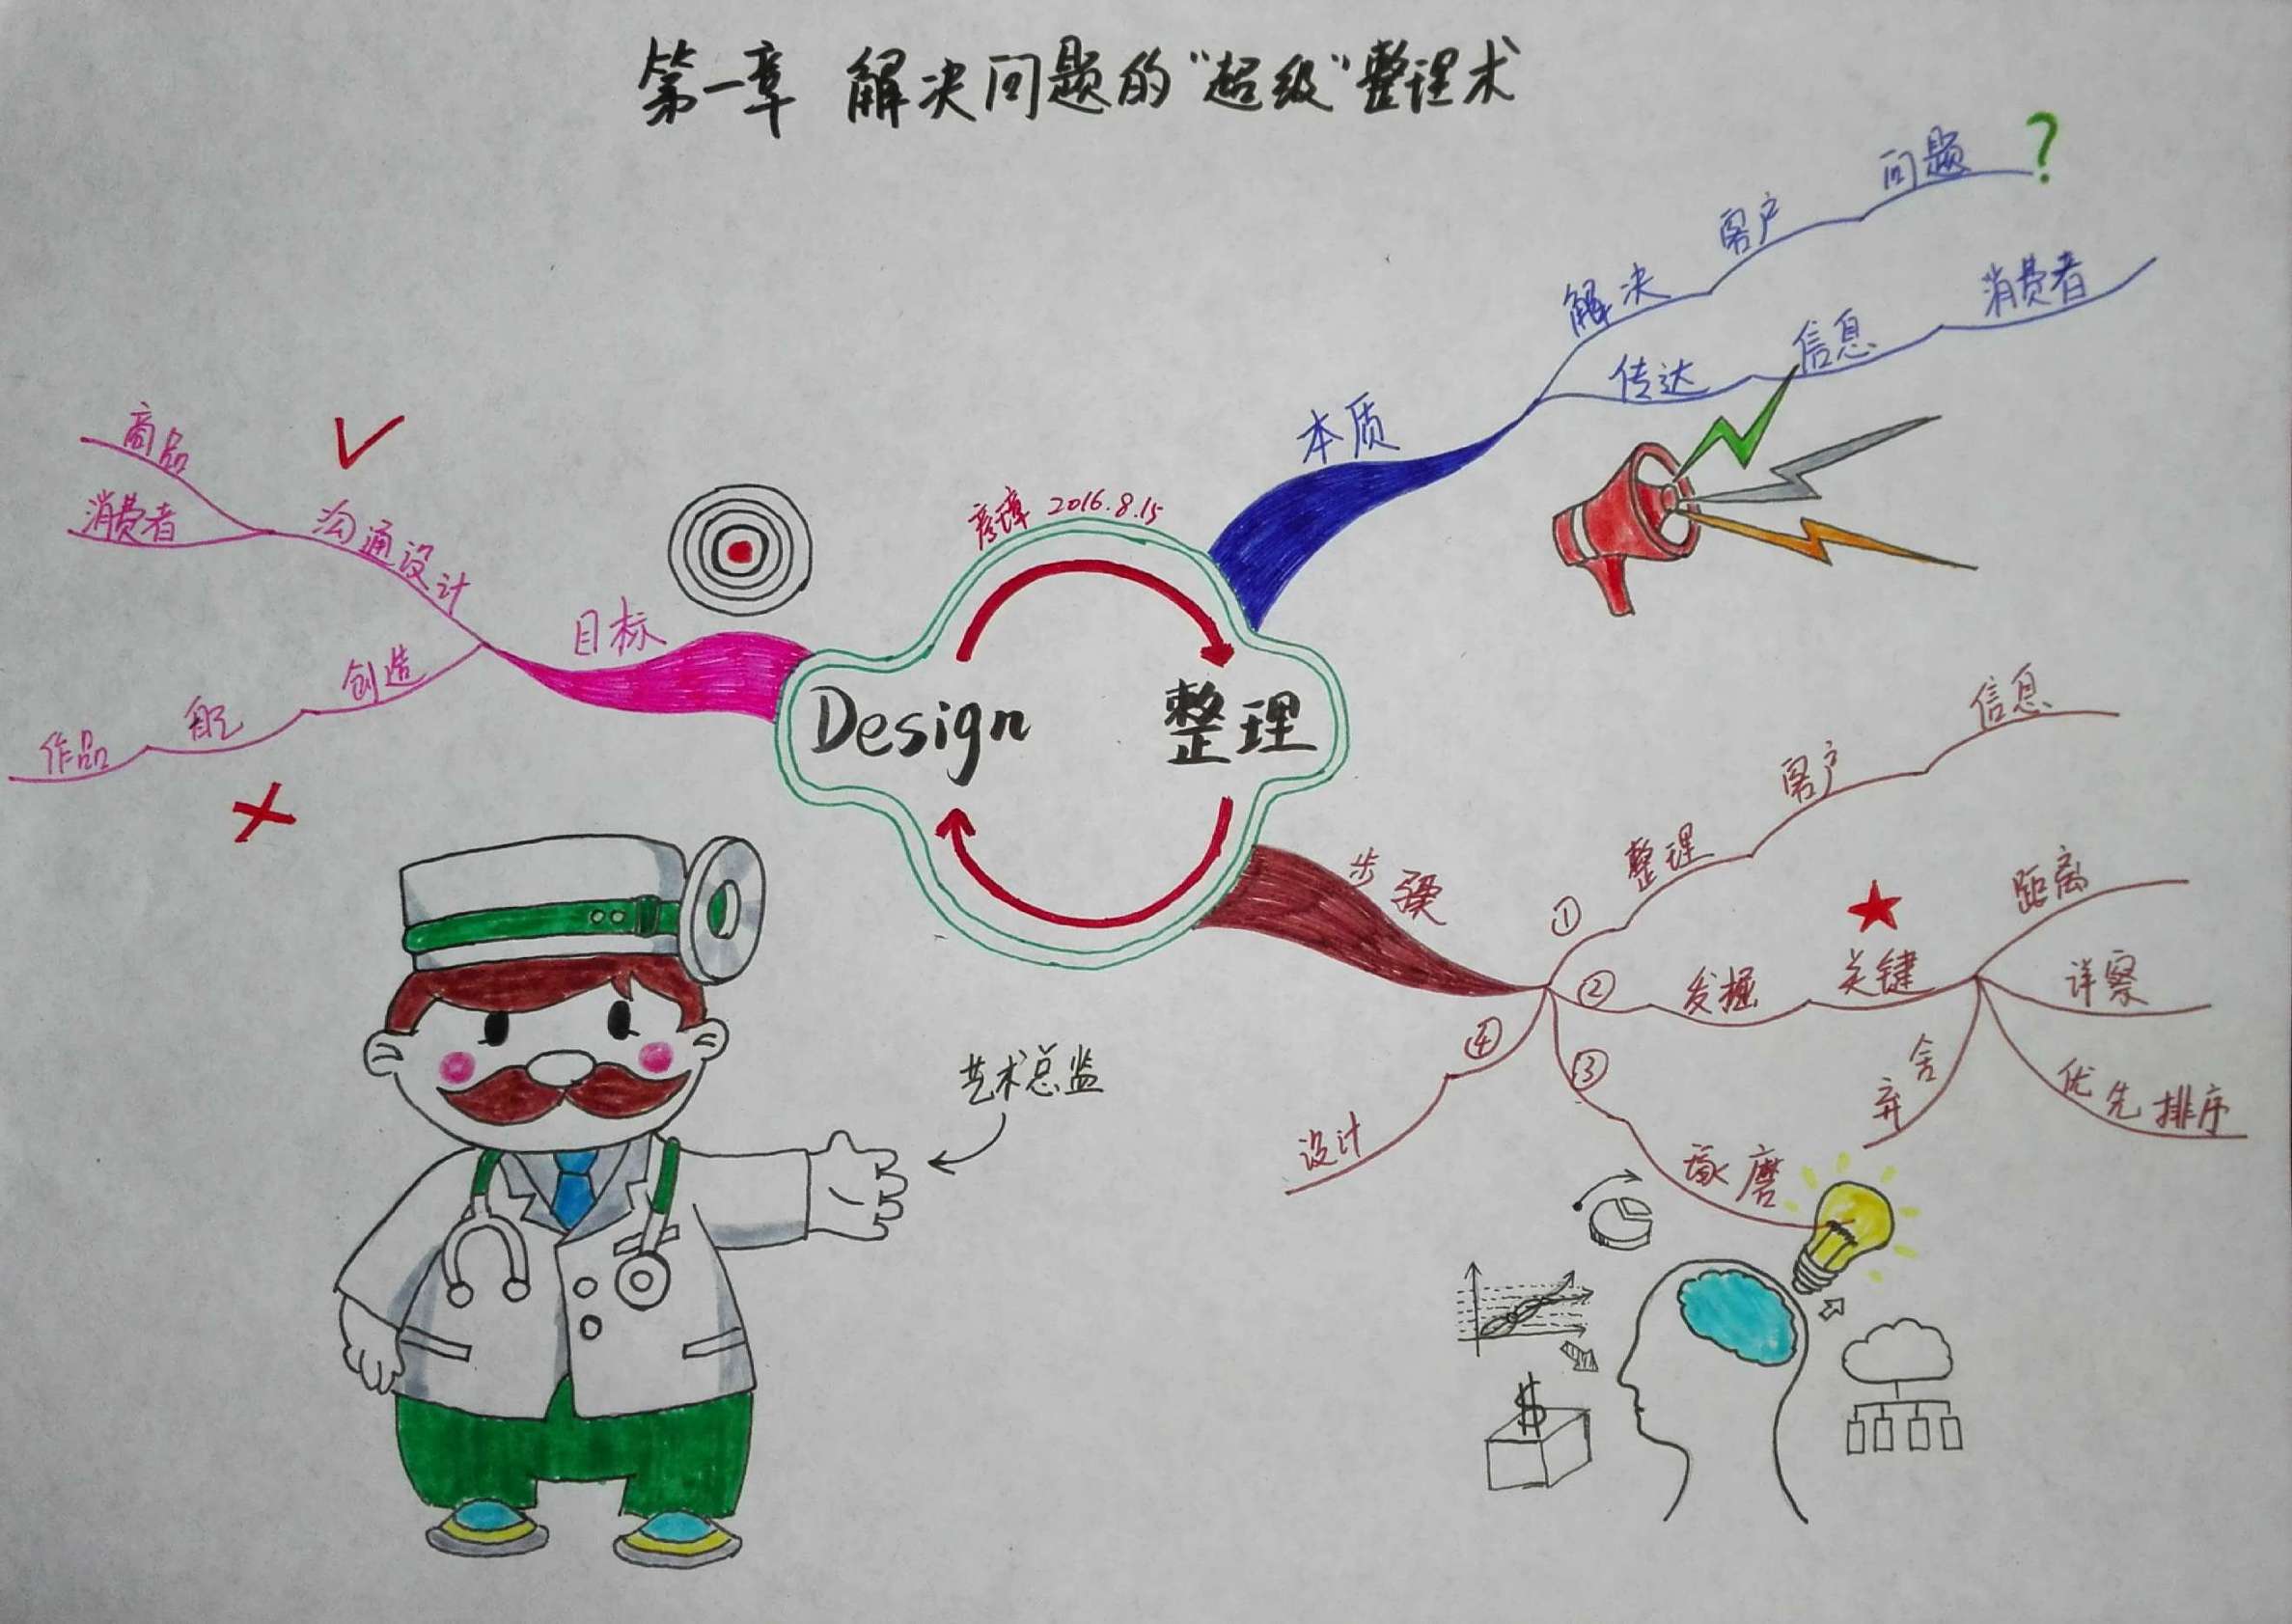 第一章 解决问题的“超级”整理术
彦璋 2016.8.15
Design 整理
本质
解决 客户 问题 ?
传达 信息 消费者
步骤
① 整理 客户 信息
② 发掘 关键
距离
详察
优先排序
舍弃
③ 琢磨
$
④ 设计
目标
沟通设计
商品
消费者
创造
作品
艺术总监